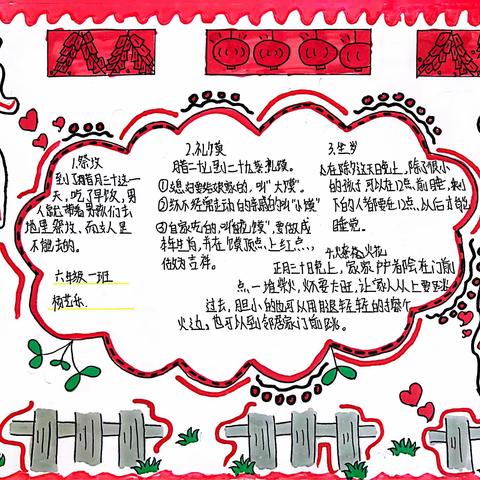 1.祭坟
到了腊月三十这一
天,吃了早饭,男
人就带着男孩们去
坟里祭坟,而女人是
不能去的。
六年级一班
杨艺乐
2.礼馍
腊二七,到二十九蒸礼馍。
①媳妇要给娘家的,叫“大馍”。
的叫“小馍”
③自家吃的,叫 要做成
并在馍顶点,上红点,
做为吉祥。
3.坐岁
在除夕这天晚上,除了很小
的孩子可以在12点,前睡,剩
下的人都要在12点,以后才能
睡觉。
4.火
正月三十日晚上,家家户户都会在门前
点一堆柴火, 让家人从上面跳
过去,胆小的也可以用腿轻轻的
火边,也可以到邻居家门前跳。